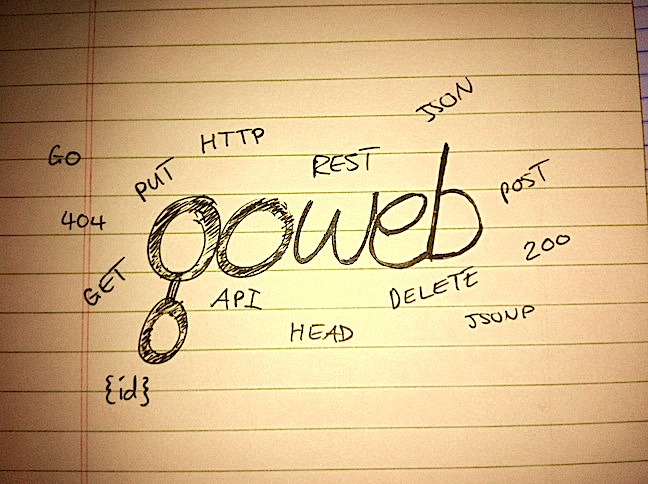 JSON
HTTP
GO
PUT
REST
POST
404
goweb
200
GET
API
DELETE
JSONP
HEAD
{id}